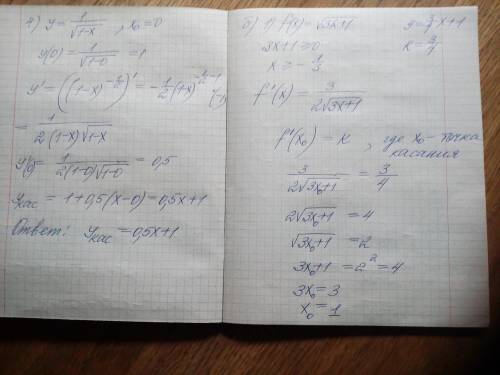 4) y = 1/√(1-x) , x₀=0
y(0) = 1/√(1-0) = 1
y' = ((1-x)^(-1/2))' = -1/2(1-x)^(-1/2-1) · (-1)
= 1/(2(1-x)√(1-x))
y'(0) = 1/(2(1-0)√(1-0)) = 0,5
yкас = 1+0,5(x-0)=0,5x+1
Ответ: yкас = 0,5x+1
б) 1) f(x) = √(3x+1)
3x+1 ≥ 0
x ≥ -1/3
y = 3/4 x+1
k = 3/4
f'(x) = 3/(2√(3x+1))
f'(x₀) = k , где x₀ - точка
касания
3/(2√(3x₀+1)) = 3/4
2√(3x₀+1) = 4
√(3x₀+1) = 2
3x₀+1 = 2² = 4
3x₀ = 3
x₀ = 1